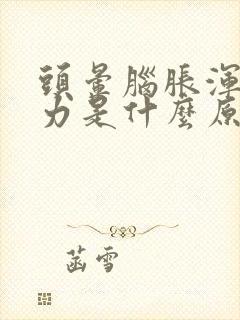 頭暈腦脹渾
力是什麼原
菡雪